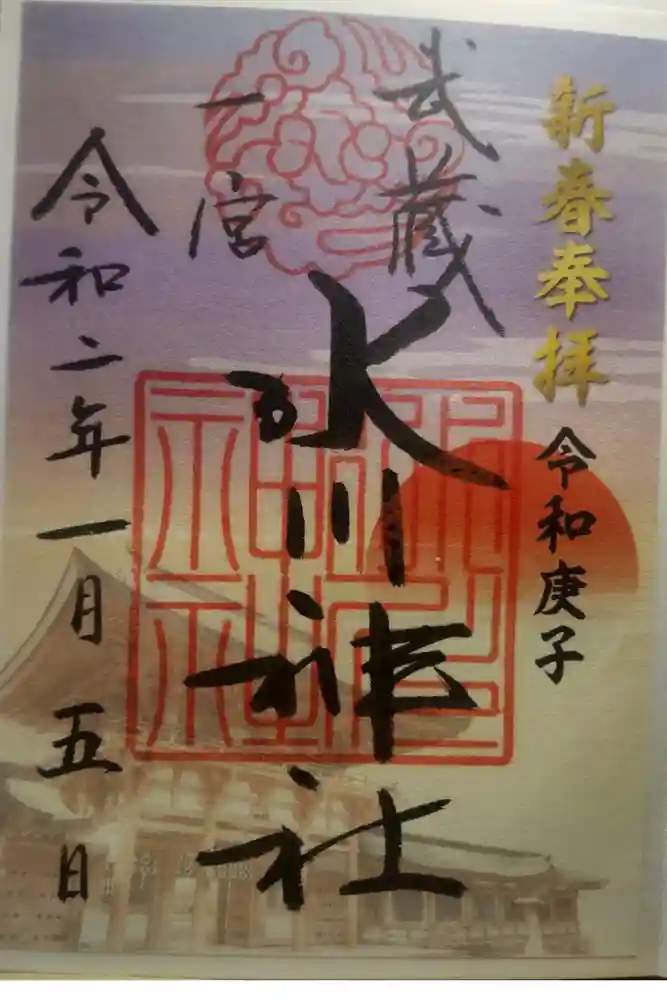 新春奉拝
令和庚子
武蔵
一宮
氷川神社
令和二年一月五日